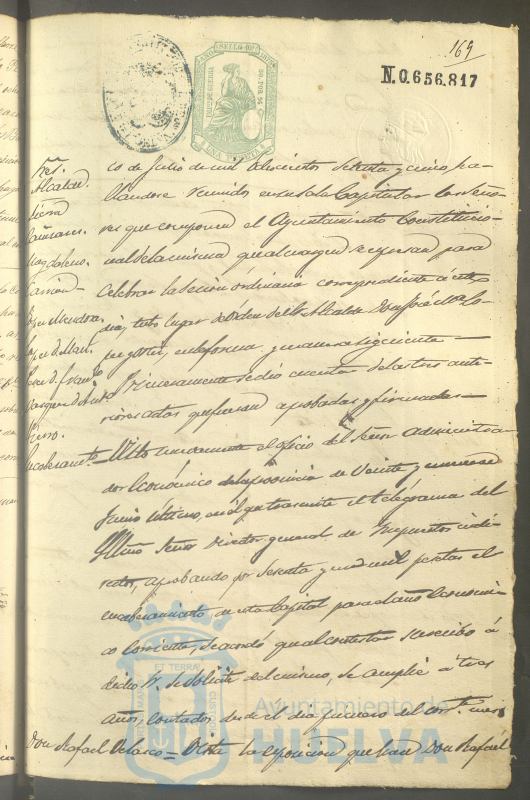 169
N.0.656.817
SELLO 10º
UNA PESETA
Sres.
Alcalde
Sierra
Magdaleno.
Garrion
Lopez Mendoza
co de Julio de mil ochocientos setenta y cinco, ha-
llandose reunidos en su Sala Capitular los seño-
res que componen el Ayuntamiento Constitucio-
nal de la misma que al margen se espresan para
celebrar la sesion ordinaria correspondiente á este
dia, tubo lugar de órden del Sr. Alcalde Don José Mª Lo-
pez y en la forma y manera siguiente
Primeramente se dió cuenta de las tres ante-
riores actas que fueron aprobadas y firmadas
Encabezamto. Visto nuevamente el oficio del Señor administra-
dor Económico de la provincia de Veinte y nueve de
Junio último, en el que trasmite el telégrama del
Ylltmo Señor Director general de Impuestos indi-
rectos, aprobando por sesenta y un mil pesetas el
encabezamiento, de esta Capital para el año Economi-
co corriente, se acordó que al contestar su recibo á
dicho Sr. se solicite del mismo, se amplie á tres
años, contados desde el dia primero del corte. mes
Don Rafael Velasco = Vista la esposicion que hace Don Rafael
ET TERRÆ
CUSTODIA
Ayuntamiento de
HUELVA